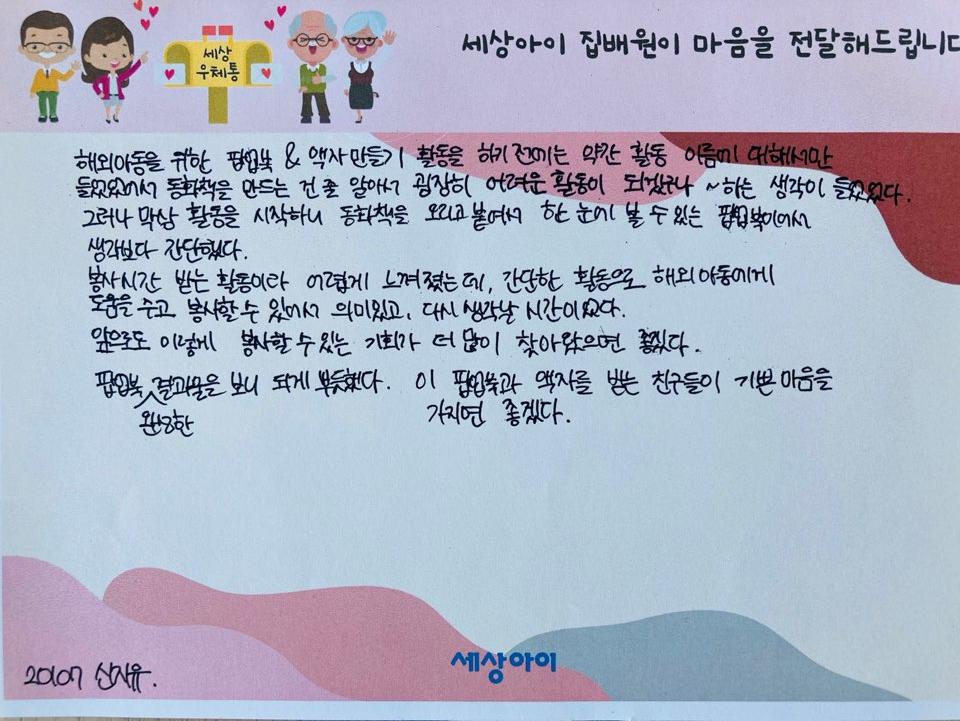 세상
우체통
세상아이 집배원이 마음을 전달해드립니다
해외아동을 위한 팝업북 & 액자만들기 활동을 하기 전에는 약간 활동 이름에 대해서만
들었었어서 동화책을 만드는 건 줄 알아서 굉장히 어려운 활동이 되겠구나 ~하는 생각이 들었었다.
그러나 막상 활동을 시작하니 동화책을 오리고 붙여서 한 눈에 볼 수 있는 팝업북이어서
생각보다 간단했다.
봉사시간 받는 활동이라 어렵게 느껴졌는데, 간단한 활동으로 해외아동에게
도움을 주고 봉사할 수 있어서 의미있고, 다시 생각날 시간이었다.
앞으로도 이렇게 봉사할 수 있는 기회가 더 많이 찾아왔으면 좋겠다.
팝업북 결과물을 보니 되게 뿌듯했다. 이 팝업북과 액자를 받는 친구들이 기쁜 마음을
완성한 가지면 좋겠다.
세상아이
20107 신지유.